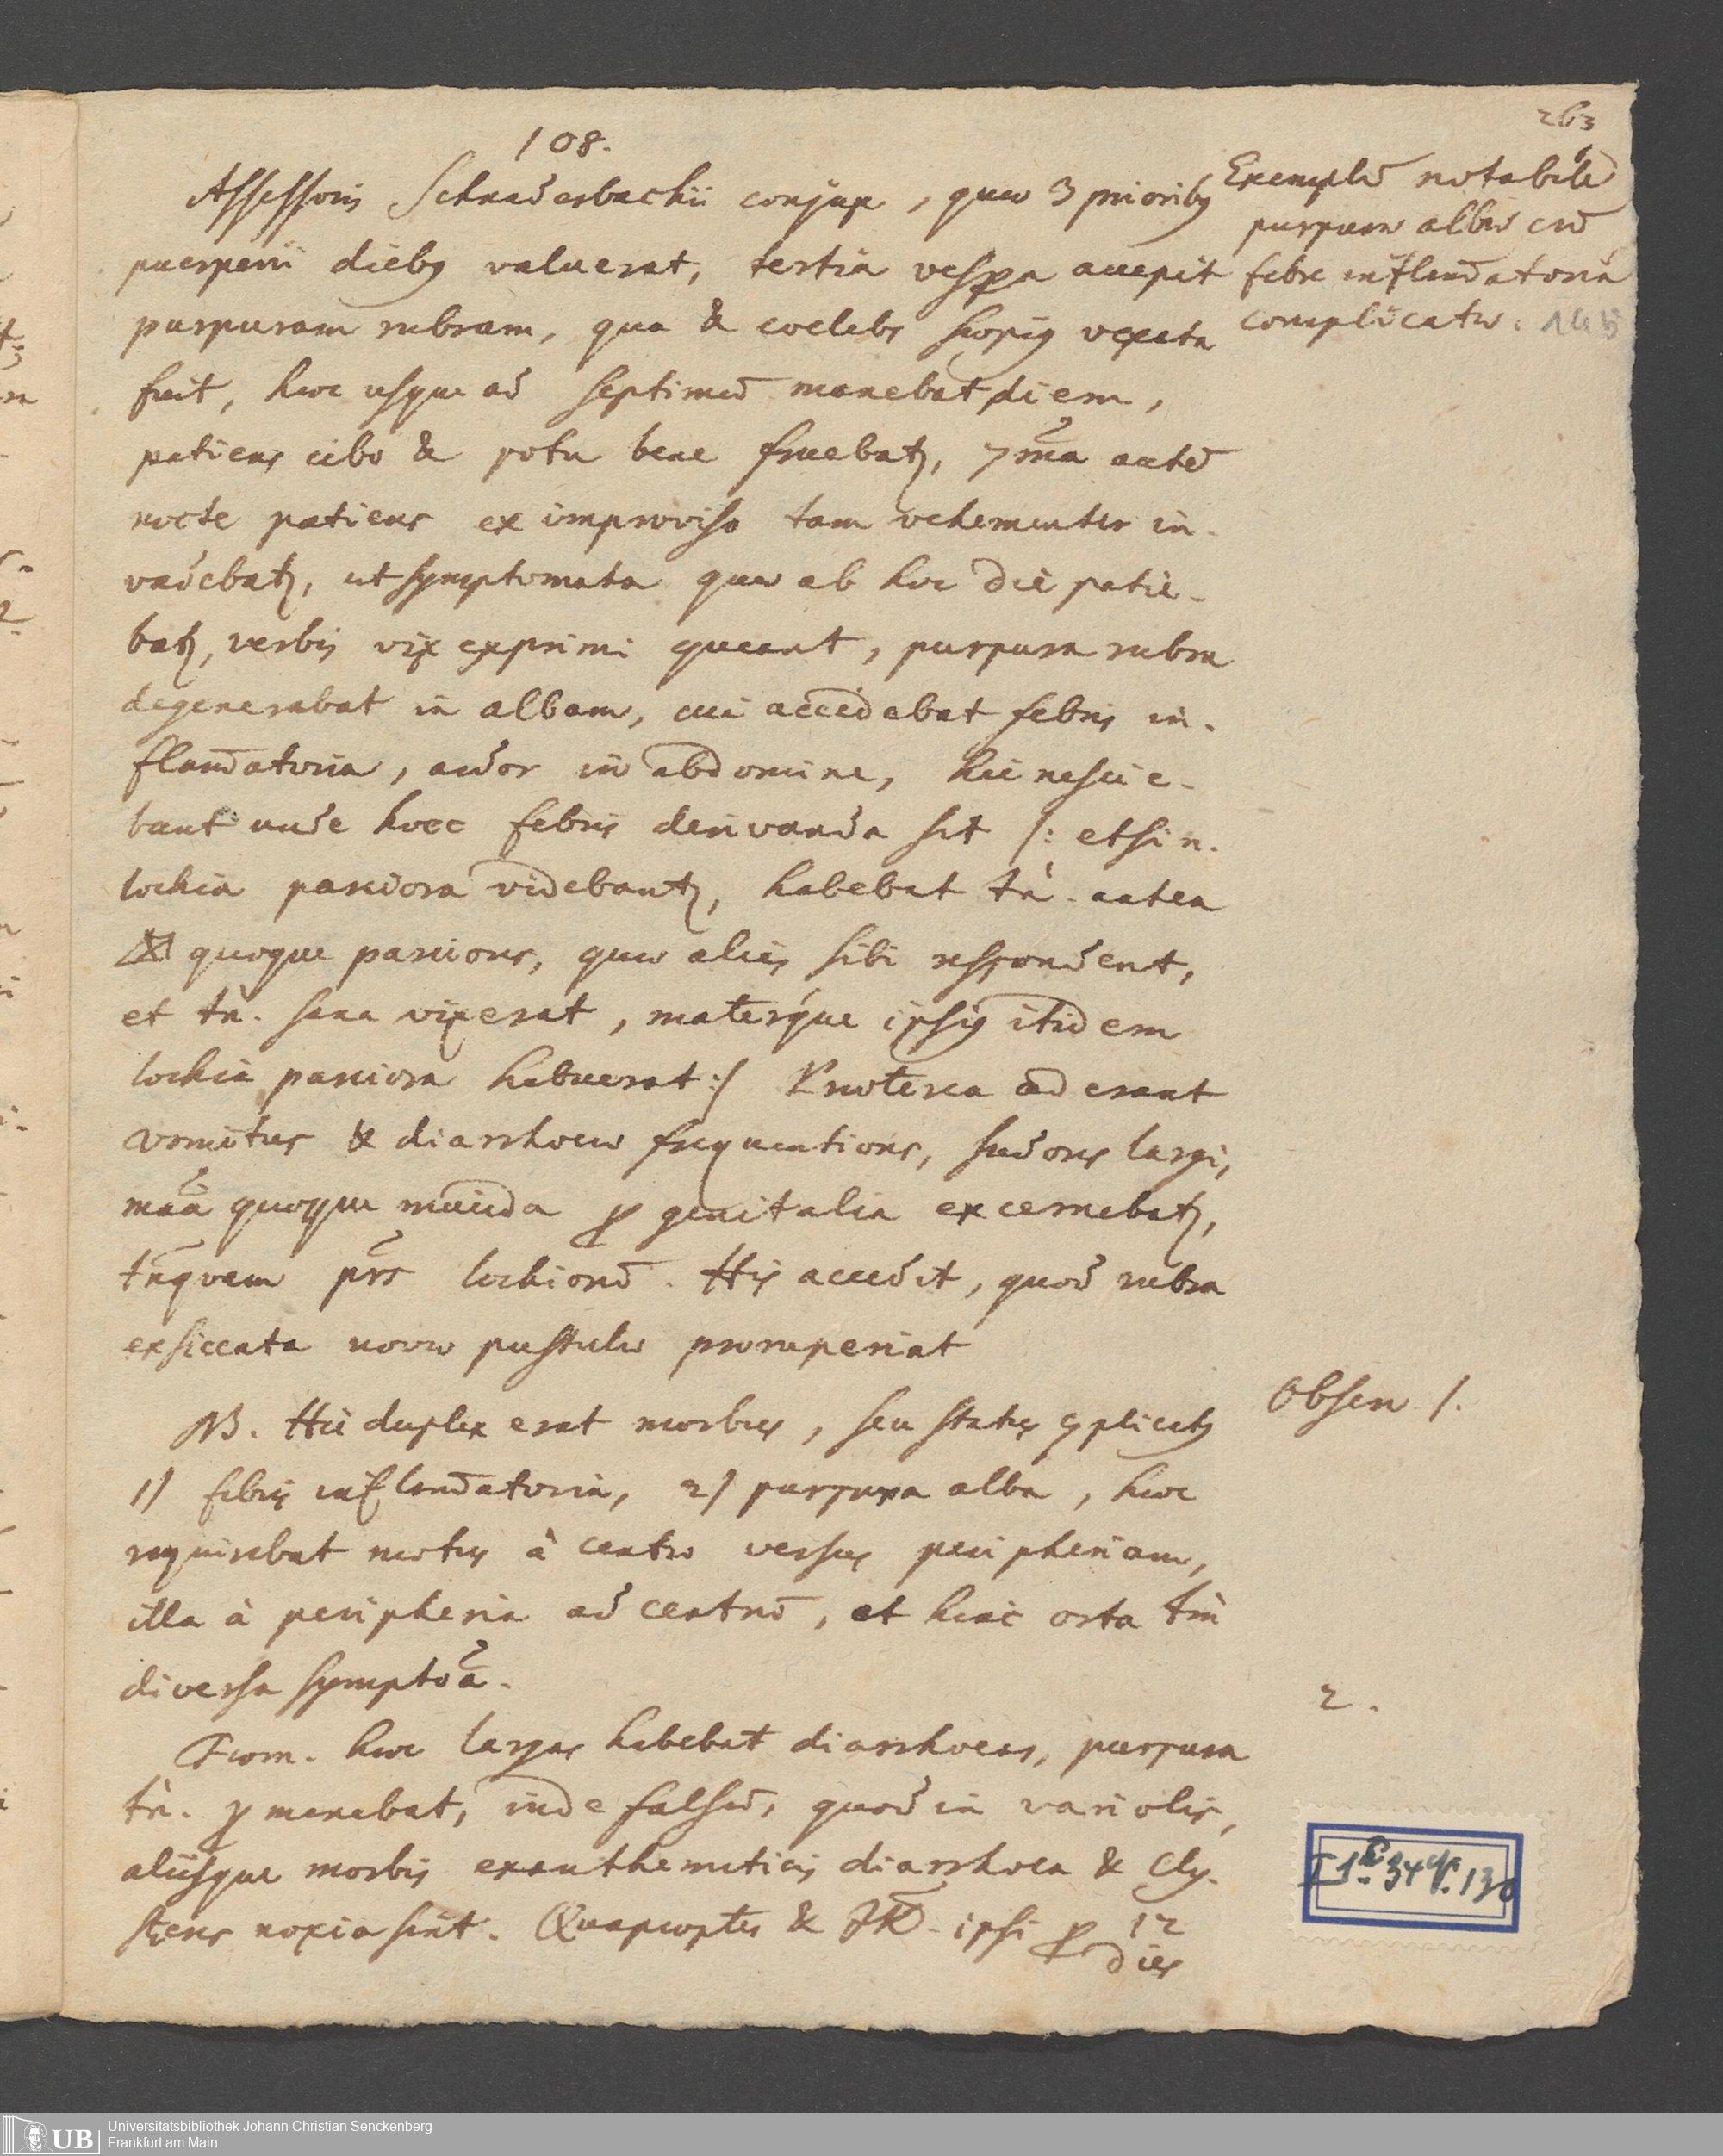 263
108.
Assessoris Schnaderbachii conjux, quae 3 priorib9
puerperii dieb9 valuerat, tertia vespa accepit
purpuram rubram, qua & coelebs saepi9 vexata
fuit, haec usque ad septimū manebat diem,
patiens cibo & potu bene fruebatr, 7ma autē
nocte patiens ex improviso tam vehementer in-
vadebatr, ut symptomata quae ab hoc die patie-
batr, verbis vix exprimi queant, purpura rubra
degenerabat in albam, cui accedebat febris in-
flam̄atoria, ardor in abdomine, hic nescie-
bant unde haec febris derivanda sit /: etsi n.
lochia parciora videbantr, habebat tn. antea
quoque parciora, quae aliis sibi respondent,
et tn. sana vixerat, materque ipsi9 itidem
lochia parciora habuerat :/ Praeterea aderant
vomitus & diarrhoeae frequentiores, sudores largi,
maā quoque mucida p genitalia excernebatr,
tn̄quam prs lochiorū. His accedit, quod rubra
exsiccata novae pustulae proruperint
NB. Hic duplex erat morbus, seu status cplicat9
1) febris inflam̄atoria, 2) purpura alba, haec
requirebat motus à centro versus peripheriam,
illa à peripheria ad centrū, et hinc orta tm
diversa symptoā.
Foem. haec largas habebat diarrhoeas, purpura
tn. pmanebat, inde falsū, quod in variolis,
aliisque morbis exanthematicis diarrhoea & Cly-
steres noxia sint. Quapropter & ipsi p 12
dies
Exemplū notabile
purpurae albae cū
febre inflam̄atoriā
complicatae. 145
Observ 1.
2.
Universitätsbibliothek Johann Christian Senckenberg
Frankfurt am Main
UB